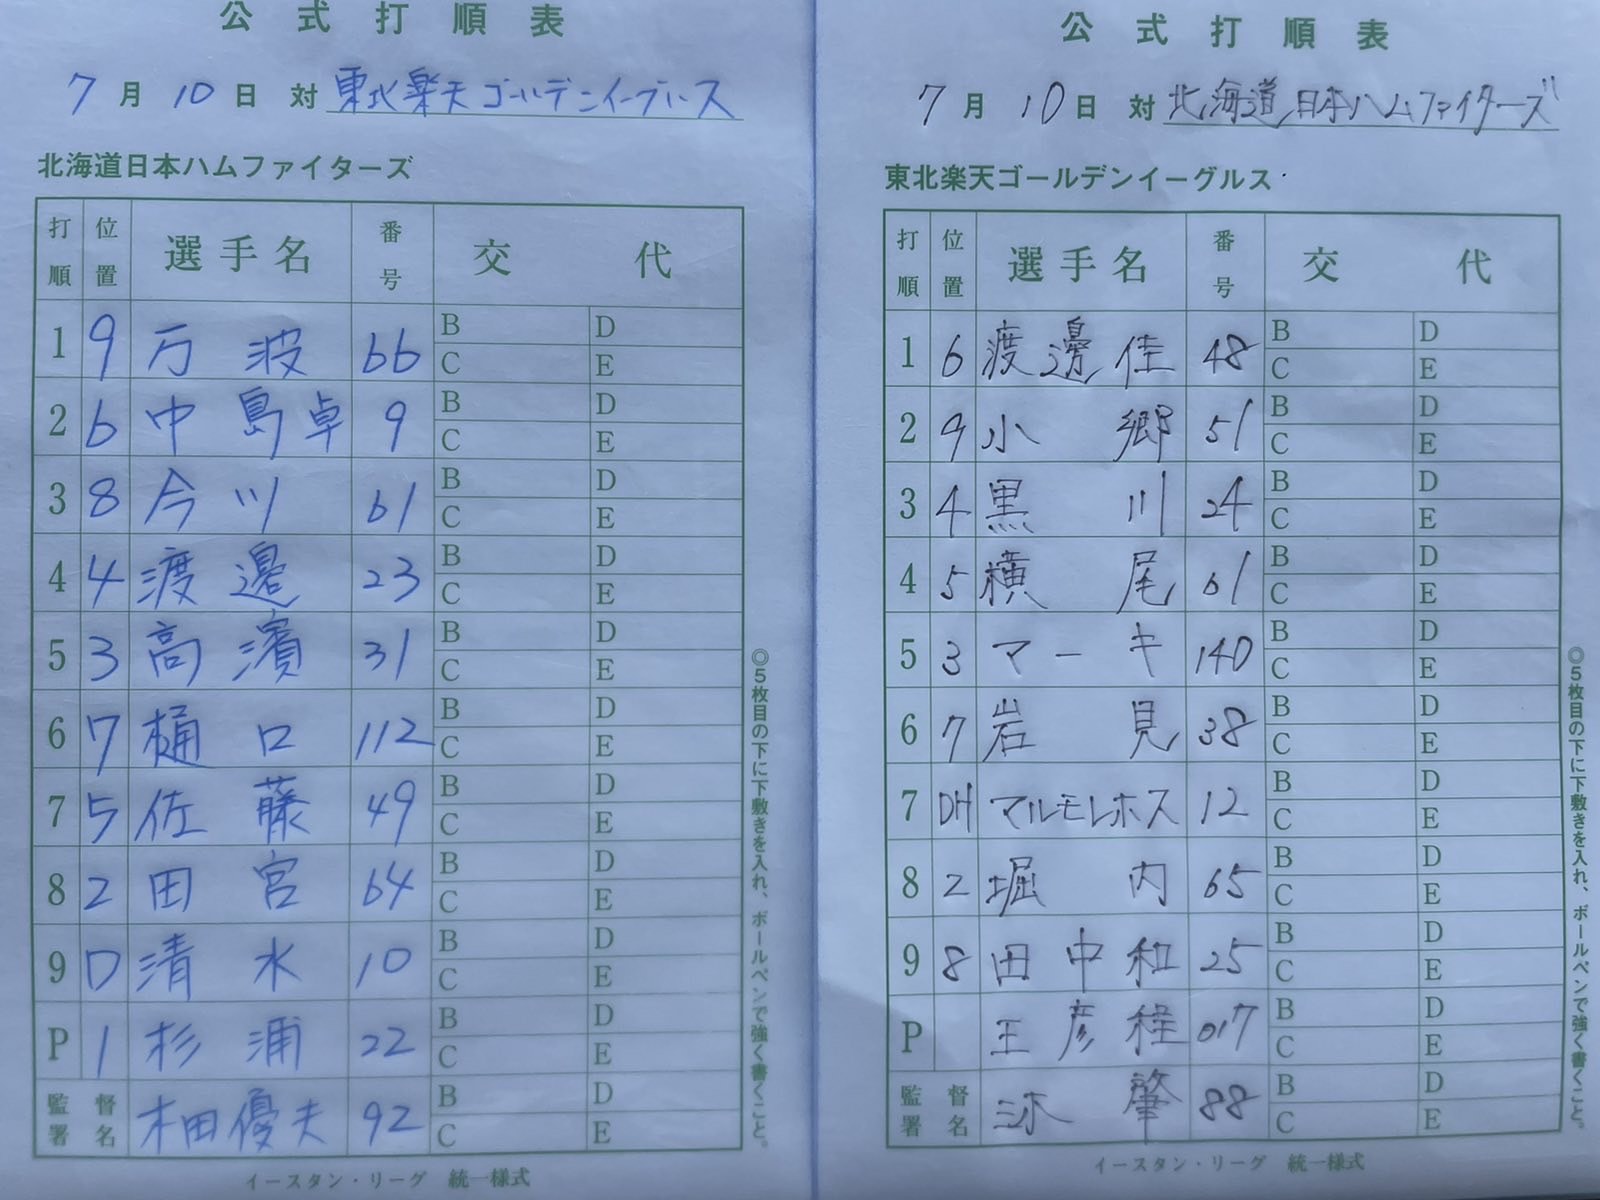 公式打順表
7月10日 対 東北楽天ゴールデンイーグルス
北海道日本ハムファイターズ
打順 位置 選手名 番号 交代
1 9 万波 66 B D C E
2 6 中島卓 9 B D C E
3 8 今川 61 B D C E
4 4 渡邉 23 B D C E
5 3 高濱 31 B D C E
6 7 樋口 112 B D C E
7 5 佐藤 49 B D C E
8 2 田宮 64 B D C E
9 D 清水 10 B D C E
P 1 杉浦 22 B D C E
監督署名 木田優夫 92 B D C E
◎5枚目の下に下敷きを入れ、ボールペンで強く書くこと。
イースタン・リーグ 統一様式
公式打順表
7月10日 対 北海道日本ハムファイターズ
東北楽天ゴールデンイーグルス
打順 位置 選手名 番号 交代
1 6 渡邊佳 48 B D C E
2 9 小郷 51 B D C E
3 4 黒川 24 B D C E
4 5 横尾 61 B D C E
5 3 マーキ 140 B D C E
6 7 岩見 38 B D C E
7 DH マルモレホス 12 B D C E
8 2 堀内 65 B D C E
9 8 田中和 25 B D C E
P 王彦程 017 B D C E
監督署名 三木肇 88 B D C E
◎5枚目の下に下敷きを入れ、ボールペンで強く書くこと。
イースタン・リーグ 統一様式